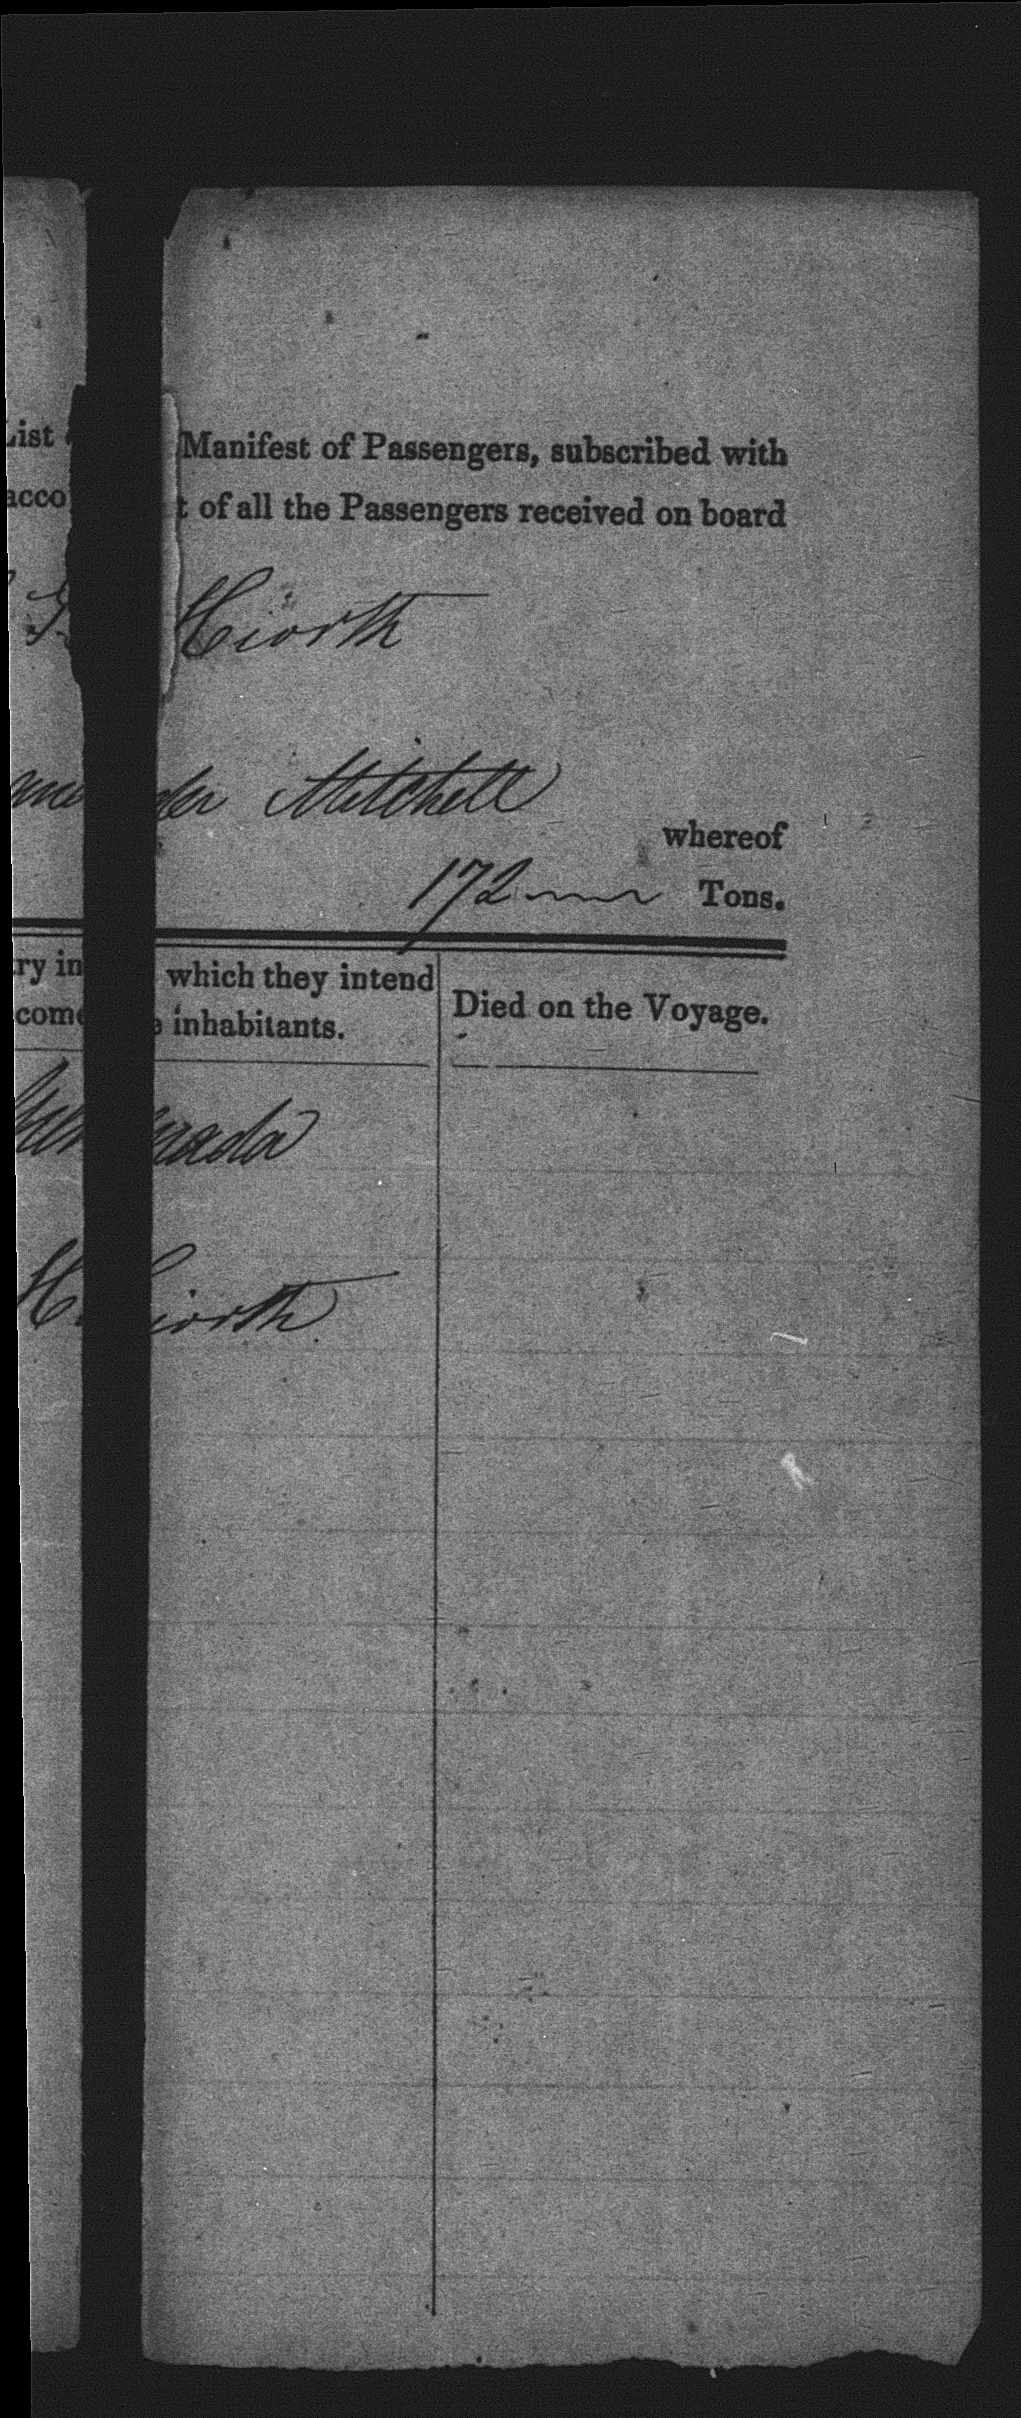 List Manifest of Passengers, subscribed with
acco t of all the Passengers received on board
Hiorth
der Mitchell
whereof
172 Tons.
ry in which they intend
come e inhabitants.
Died on the Voyage.
nada
H. Hiorth